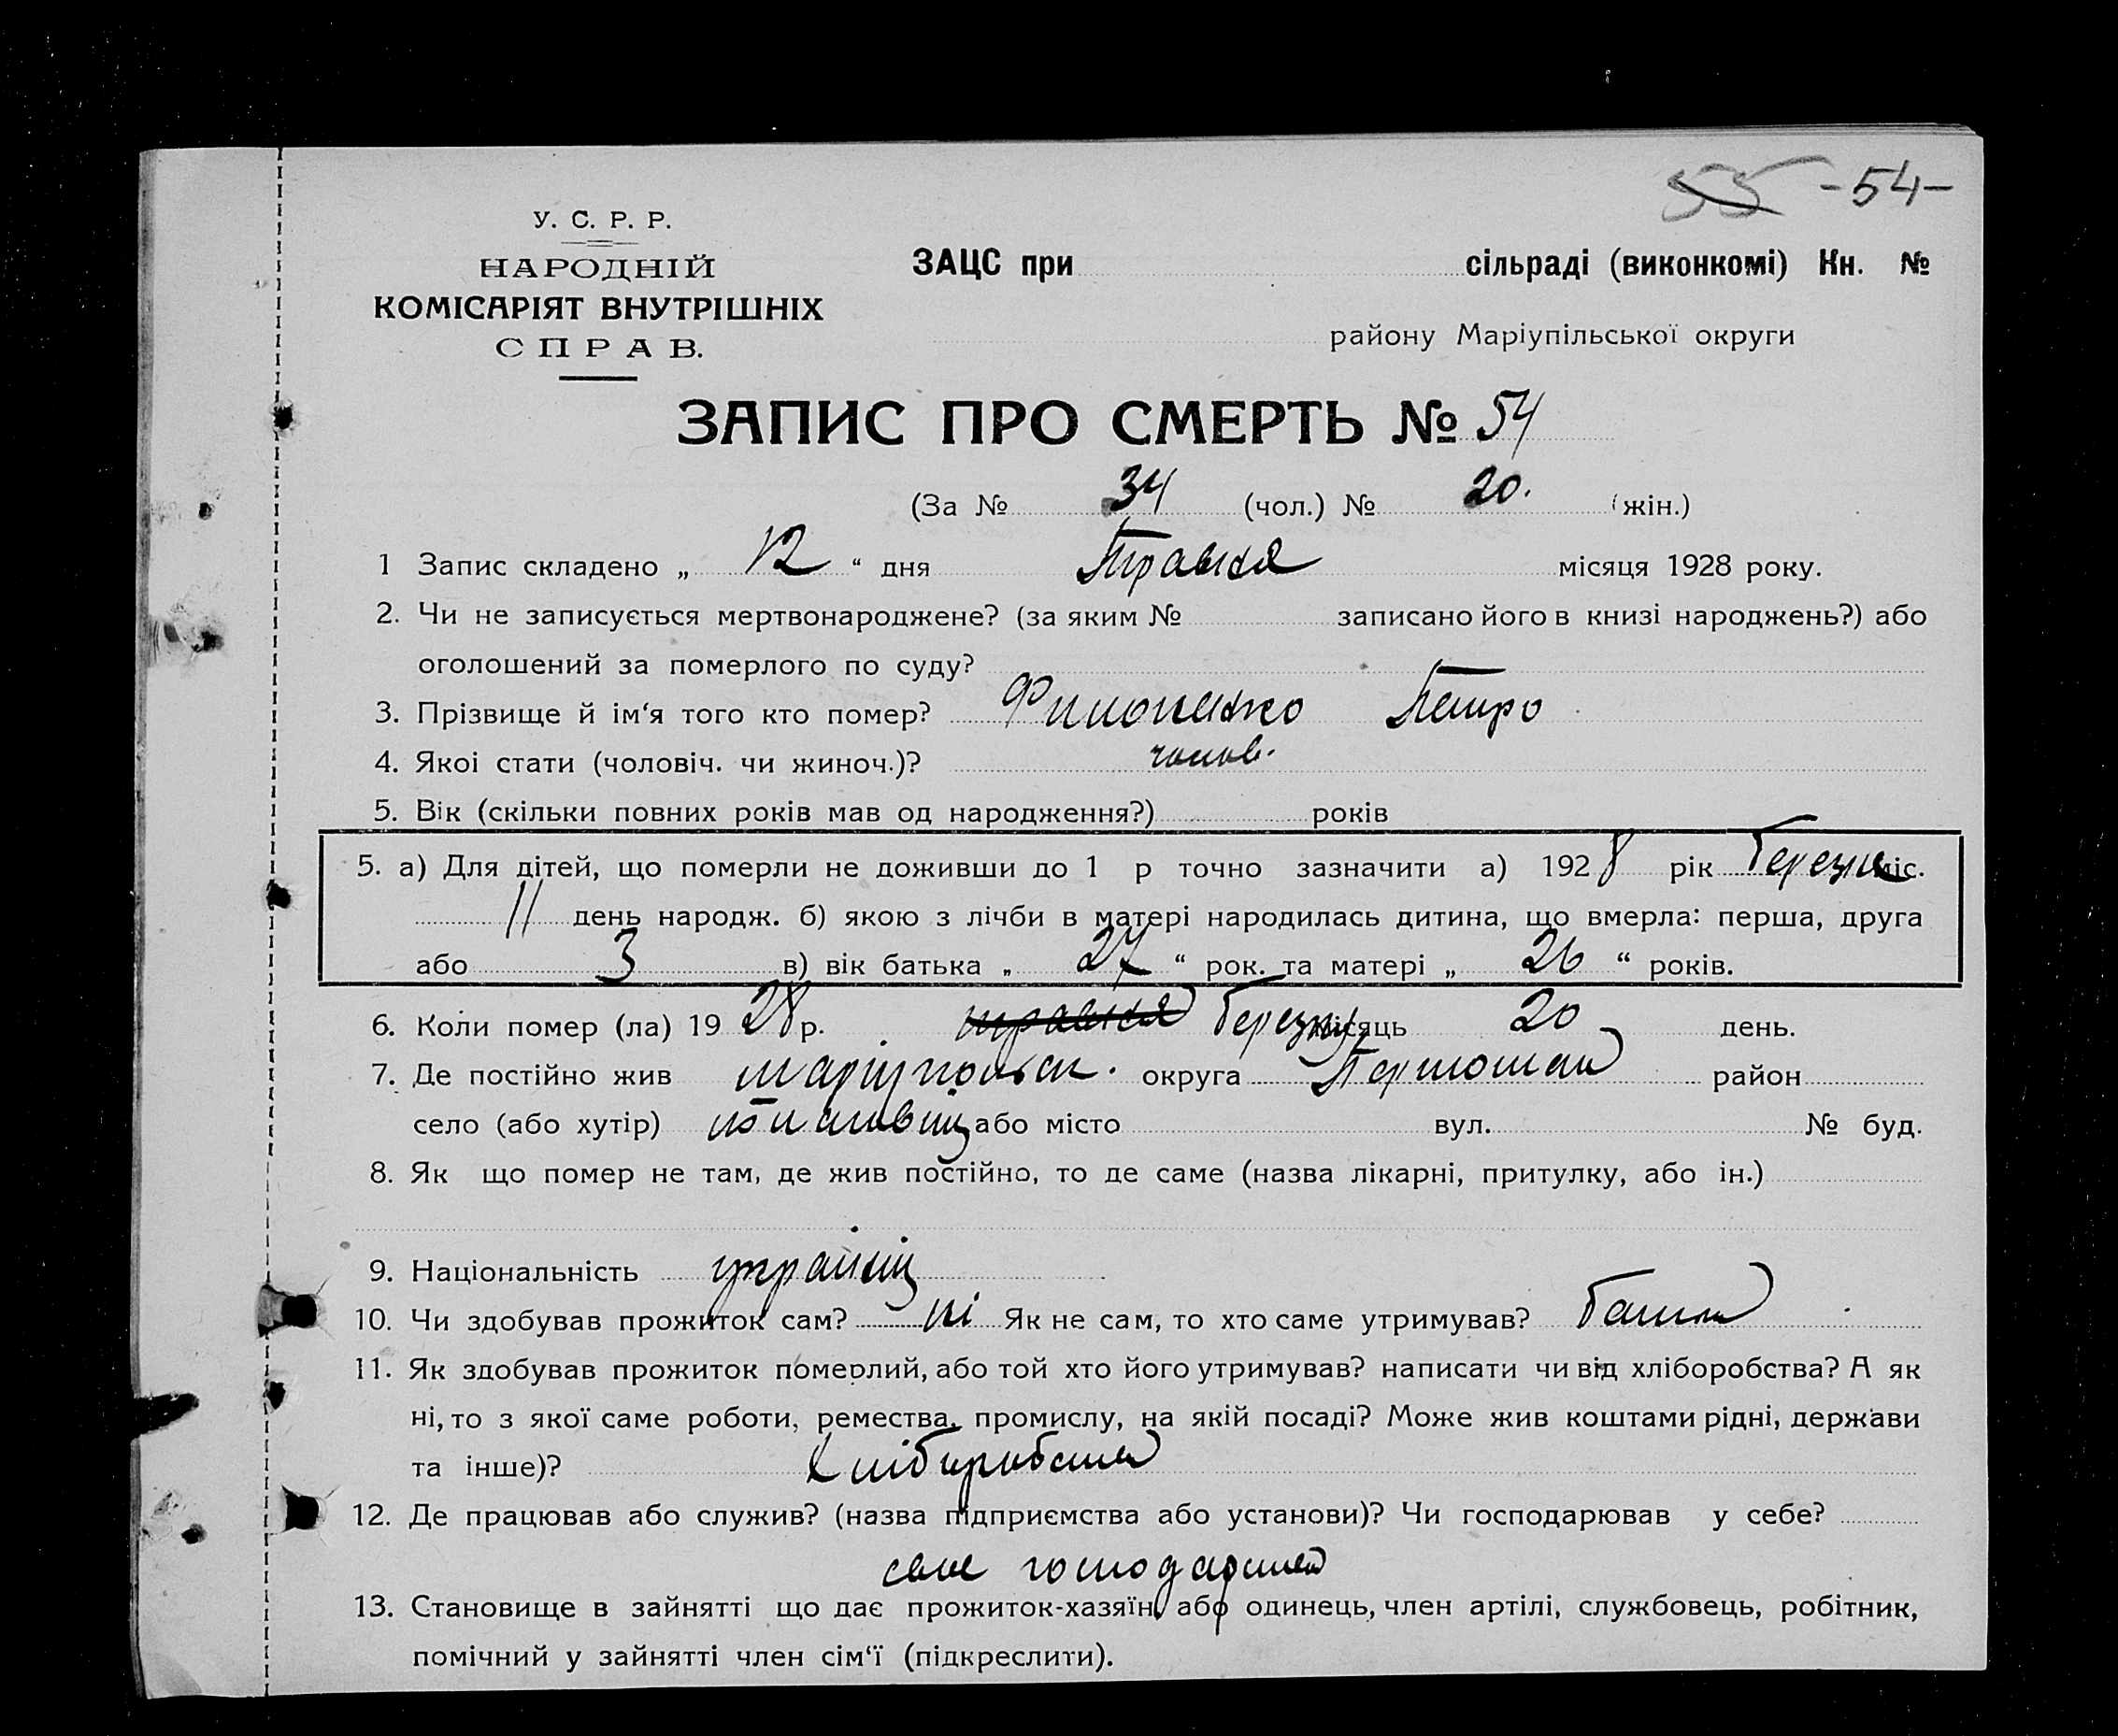 55 -54-
У. С. Р. Р.
НАРОДНІЙ
КОМІСАРІЯТ ВНУТРІШНІХ
СПРАВ.
ЗАЦС при сільраді (виконкомі) Кн. №
району Маріупільської округи
ЗАПИС ПРО СМЕРТЬ № 54
(За № 34 (чол.) № 20. (жін.)
1 Запис складено „ 12 “ дня Травня місяця 1928 року.
2. Чи не записується мертвонароджене? (за яким № записано його в книзі народжень?) або
оголошений за померлого по суду?
3. Прізвище й ім‘я того кто помер? Филоненко Петро
4. Якоі стати (чоловіч. чи жиноч.)? чолов.
5. Вік (скільки повних років мав од народження?) років
5. а) Для дітей, що померли не доживши до 1 р точно зазначити а) 1928 рік Березня міс.
11 день народж. б) якою з лічби в матері народилась дитина, що вмерла: перша, друга
або 3 в) вік батька „ 27 “ рок. та матері „ 26 “ років.
6. Коли помер (ла) 19 28 р. травня Березня місяць 20 день.
7. Де постійно жив маріупольськ. округа район
село (або хутір) або місто вул. № буд.
8. Як що помер не там, де жив постійно, то де саме (назва лікарні, притулку, або ін.)
9. Національність українец
10. Чи здобував прожиток сам? ні Як не сам, то хто саме утримував? батько
11. Як здобував прожиток померлий, або той хто його утримував? написати чи від хліборобства? А як
ні, то з якої саме роботи, ремества, промислу, на якій посаді? Може жив коштами рідні, держави
та інше)? Хліборобства
12. Де працював або служив? (назва підприємства або установи)? Чи господарював у себе?
своє господарство
13. Становище в зайнятті що дає прожиток-хазяїн, або одинець, член артілі, службовець, робітник,
помічний у зайнятті член сім‘ї (підкреслити).